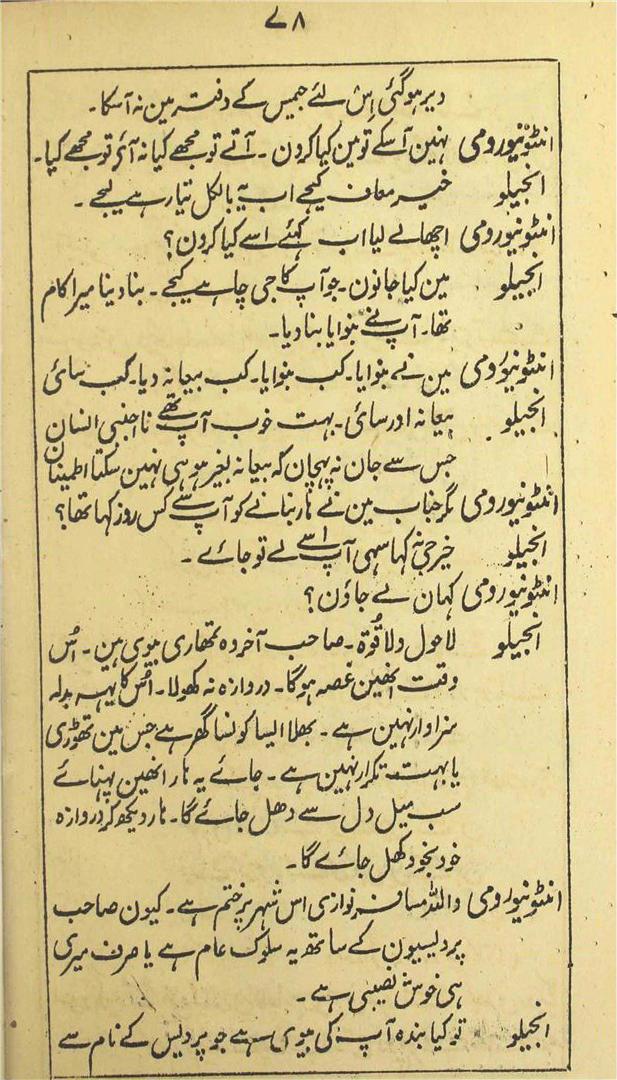 ۷۸
دیر ہو گئی اِس لئے جمیس کے دفتر مین نہ آسکا۔
انٹونیورومی نہین آسکے تو مین کیا کرون۔ آتے تو مجھے کیا نہ آئر تو مجھے کیا۔
انجیلو خیر معاف کیجے اب یہ بالکل تیار ہے لیجے۔
انٹونیورومی اچھا لے لیا اب کہئے اسے کیا کرون؟
انجیلو مین کیا جانون۔ جو آپ کا جی چاہے کیجے۔ بنا دینا میرا کام
تھا۔ آپ نے بنوایا بنا دیا۔
انٹونیورومی مین نے بنوایا۔ کب بنوایا۔ کب بیعانہ دیا۔ کب سائی
انجیلو بیعانہ اور سائی۔ بہت خوب آپ تھے نا اجنبی انسان
جس سے جان نہ پہچان کہ بیعانہ بغیر ہو ہی نہین سکتا اطمینان
انٹونیورومی مگر جناب مین نے ہار بنانے کو آپ سے کس روز کہا تھا؟
انجیلو خیر جی نہ کہا سہی آپ اسے لے تو جائے۔
انٹونیورومی کہان لے جاؤن؟
انجیلو لاحول ولا قُوة۔ صاحب آخر وہ تمھاری بیوی ہین۔ اُس
وقت انھین غصہ ہوگا۔ دروازہ نہ کھولا۔ اُس کا یہہ بدلہ
سزاوار نہین ہے۔ بھلا ایسا کونسا گھر ہے جس مین تھوڑی
یا بہت تکرار نہین ہے۔ جائے یہ ہار انھین پہنائے
سب میل دل سے دھل جائے گا۔ ہار دیکھ کر دروازہ
خود بخود کھل جائے گا۔
انٹونیورومی واللہ مسافر نوازی اس شہر پر ختم ہے۔ کیون صاحب
پردیسیون کے ساتھ یہ سلوک عام ہے یا صرف میری
ہی خوش نصیبی ہے۔
انجیلو تو کیا بندہ آپ کی بیوی ہے جو پردیس کے نام سے